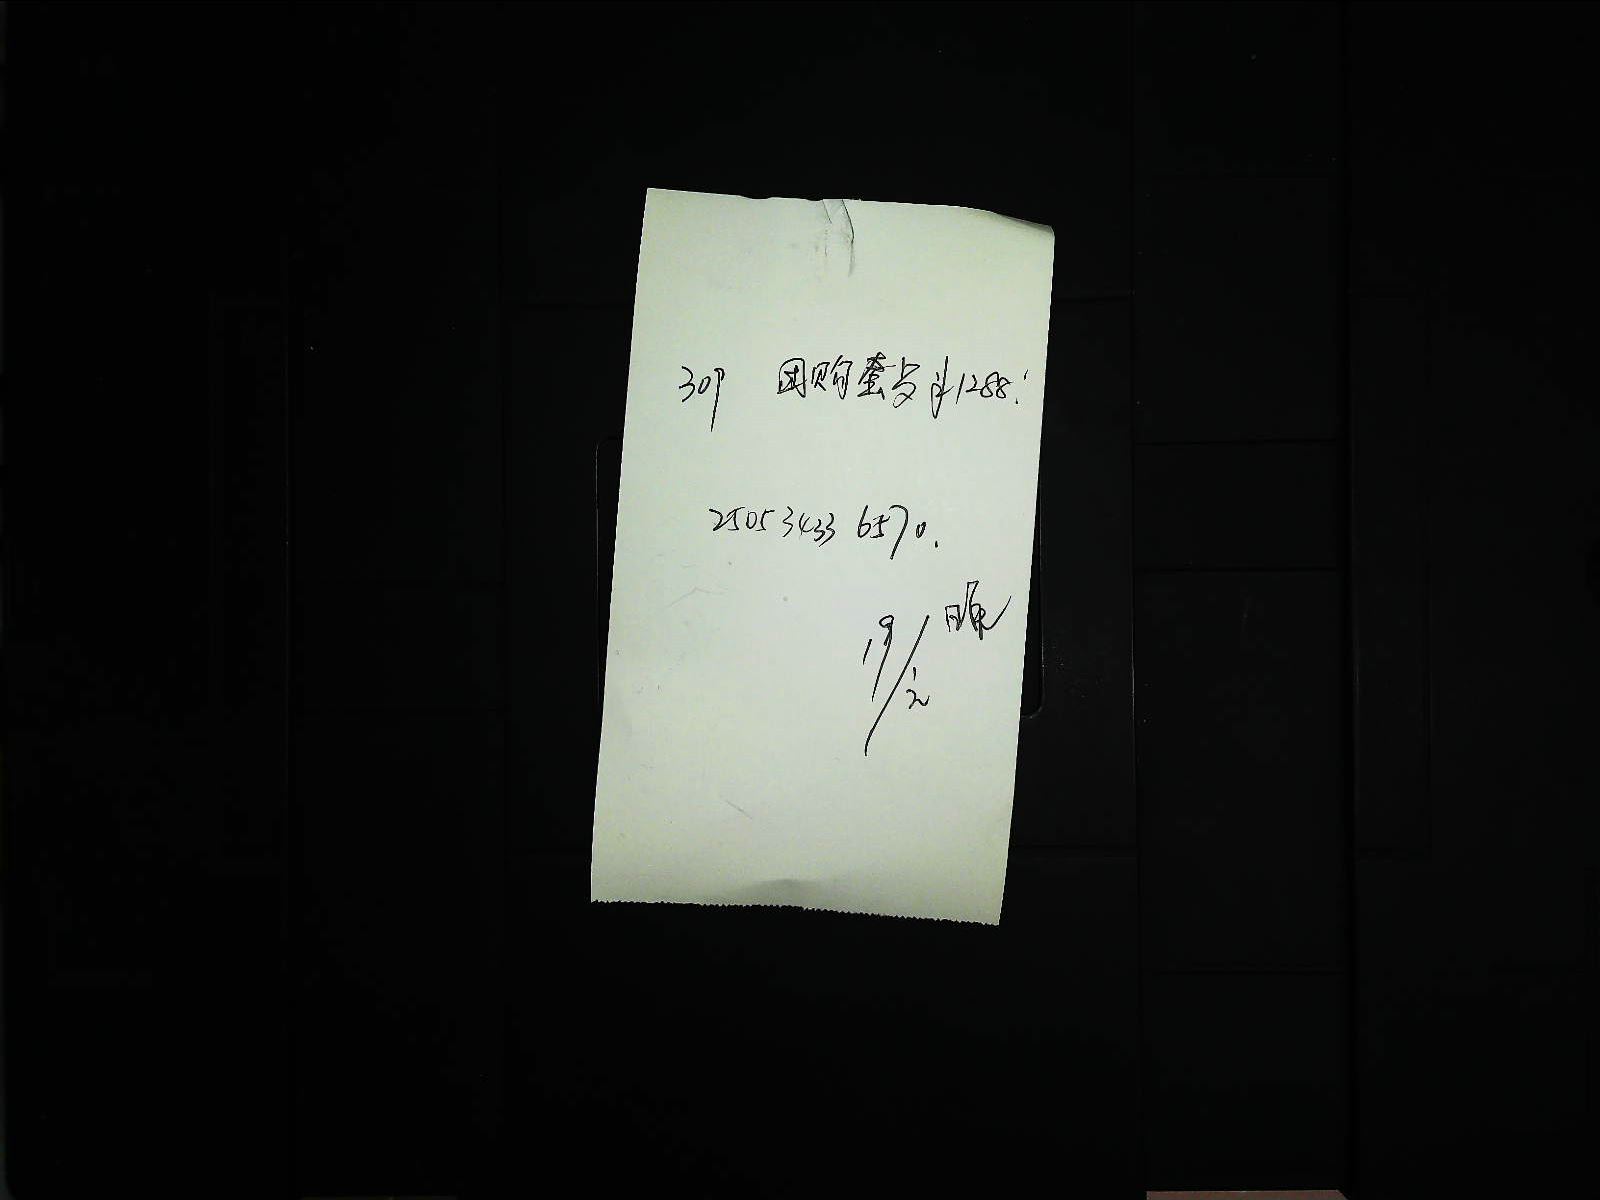 309 团购套 ¥1288.
2505 3433 6570.
19/2